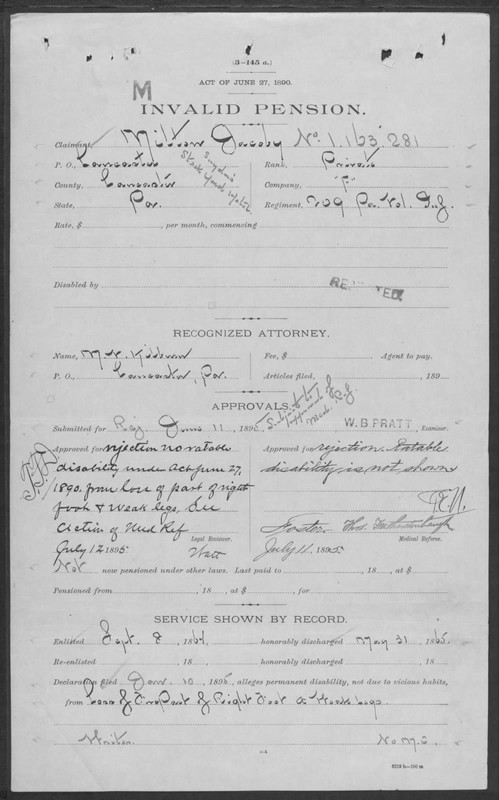 (3-145 a.)
ACT OF JUNE 27, 1890.
M
INVALID PENSION.
Claimant, Milton Jacoby No. 1.163.281
P. O., Lancaster Rank, Private
County, Lancaster Company, "F"
State, Pa. Regiment, 209 Pa. Vol. Inf.
Rate, $ , per month, commencing
Disabled by
REJECTED.
RECOGNIZED ATTORNEY.
Name, Fee, $ Agent to pay.
P. O., Lancaster, Pa. Articles filed, , 189
APPROVALS.
Subject to approval of
Submitted for Rej June 11, 1895 W. B. PRATT, Examiner.
Approved for rejection no ratable Approved for rejection. Ratable
disability under Act June 27, disability is not shown
1890. from loss of part of right
foot & weak legs. See
Action of Med Ref Foster
Legal Reviewer. Medical Referee.
July 12 1895 July 11, 1895
Not now pensioned under other laws. Last paid to , 18 , at $
Pensioned from , 18 , at $ , for
SERVICE SHOWN BY RECORD.
Enlisted Sept. 8, 1864, honorably discharged May 31 1865.
Re-enlisted , 18 honorably discharged , 18
Declaration filed 10, 1895, alleges permanent disability, not due to vicious habits,
from Loss of Part of Right Foot & Weak Legs